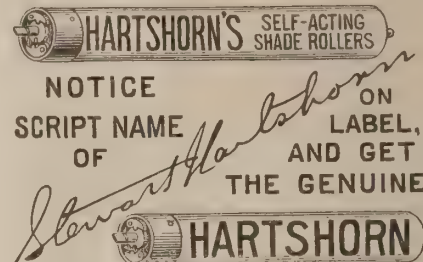 HARTSHORN'S SELF-ACTING
SHADE ROLLERS
NOTICE
SCRIPT NAME
OF
Stewart Hartshorn
ON
LABEL,
AND GET
THE GENUINE
HARTSHORN